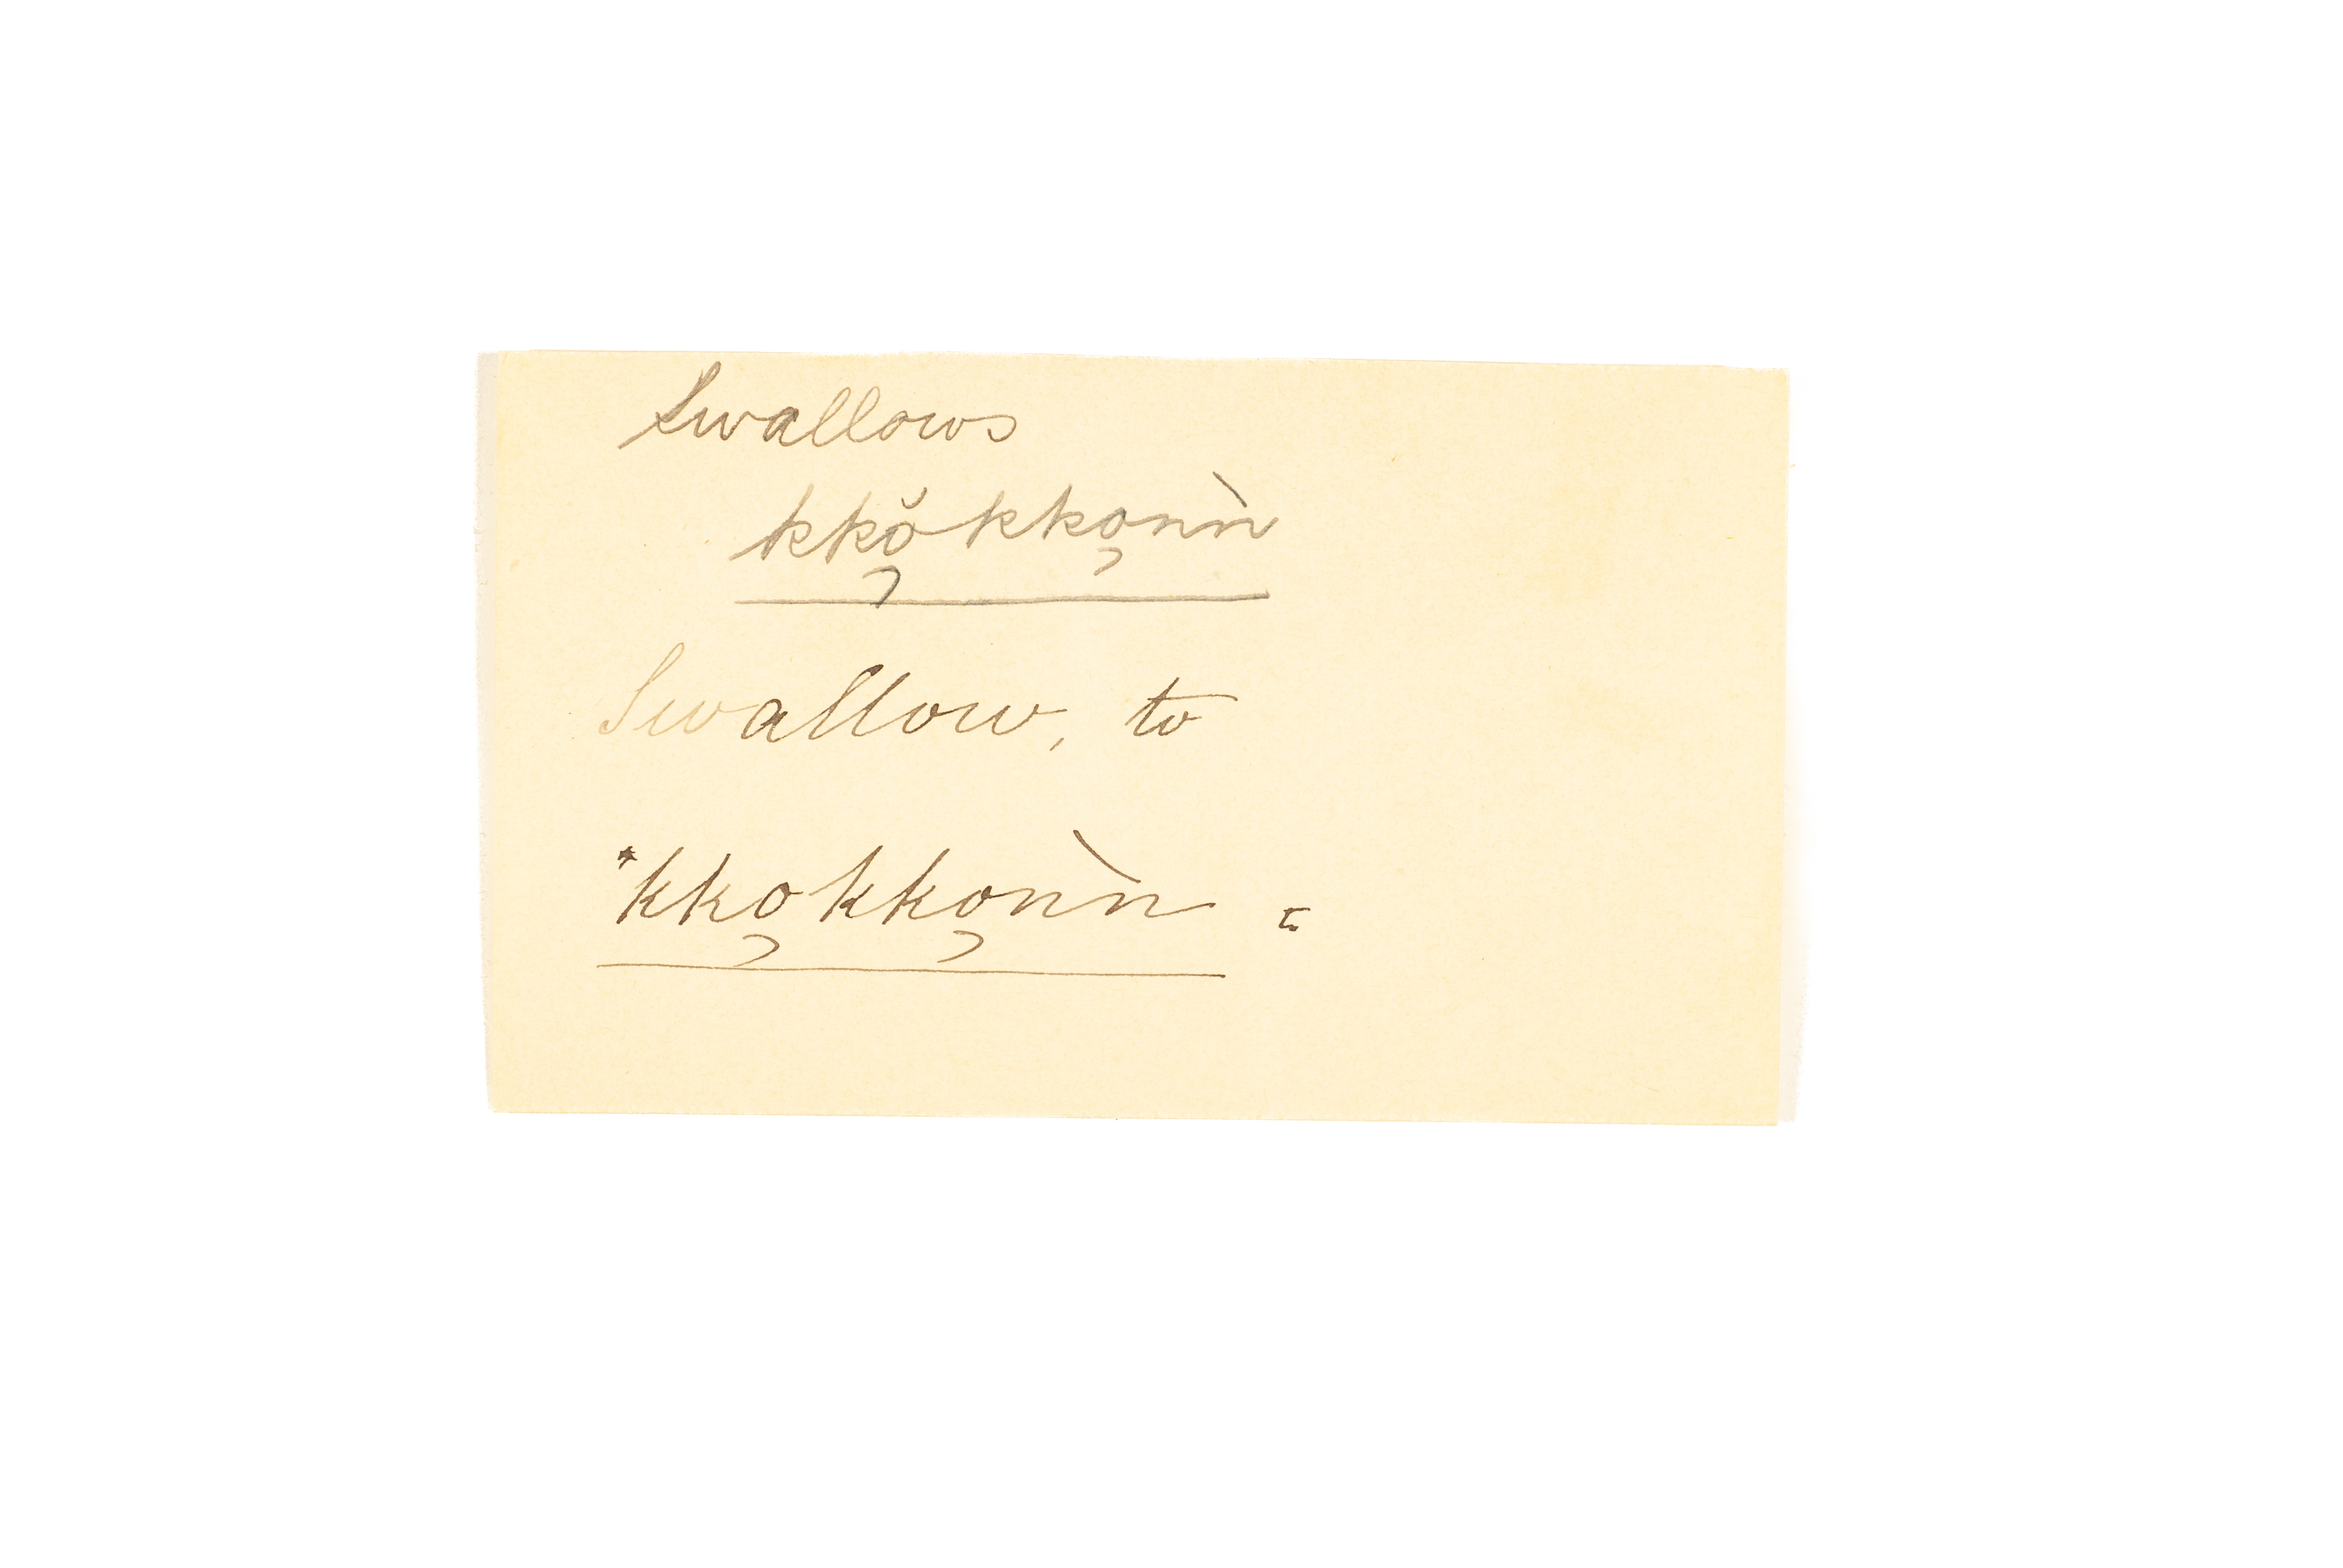 Swallows
kkǫ̆kkǫnǹ
Swallow, to
*kkǫkkǫnǹ